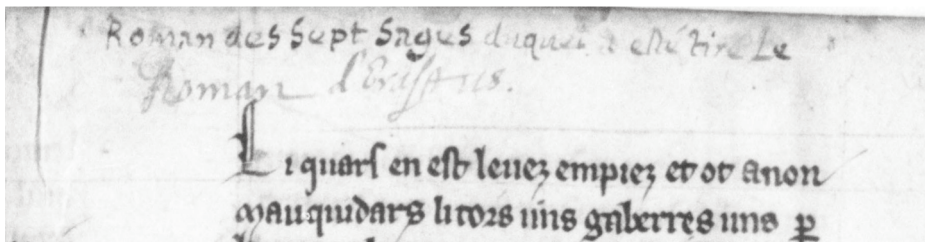 Roman des Sept Sages duquel a esté tiré Le
Roman d'Erastus.
Li quars en est leuez empiez et ot anon
mauquidars li tors uns gaberres uns ꝑ